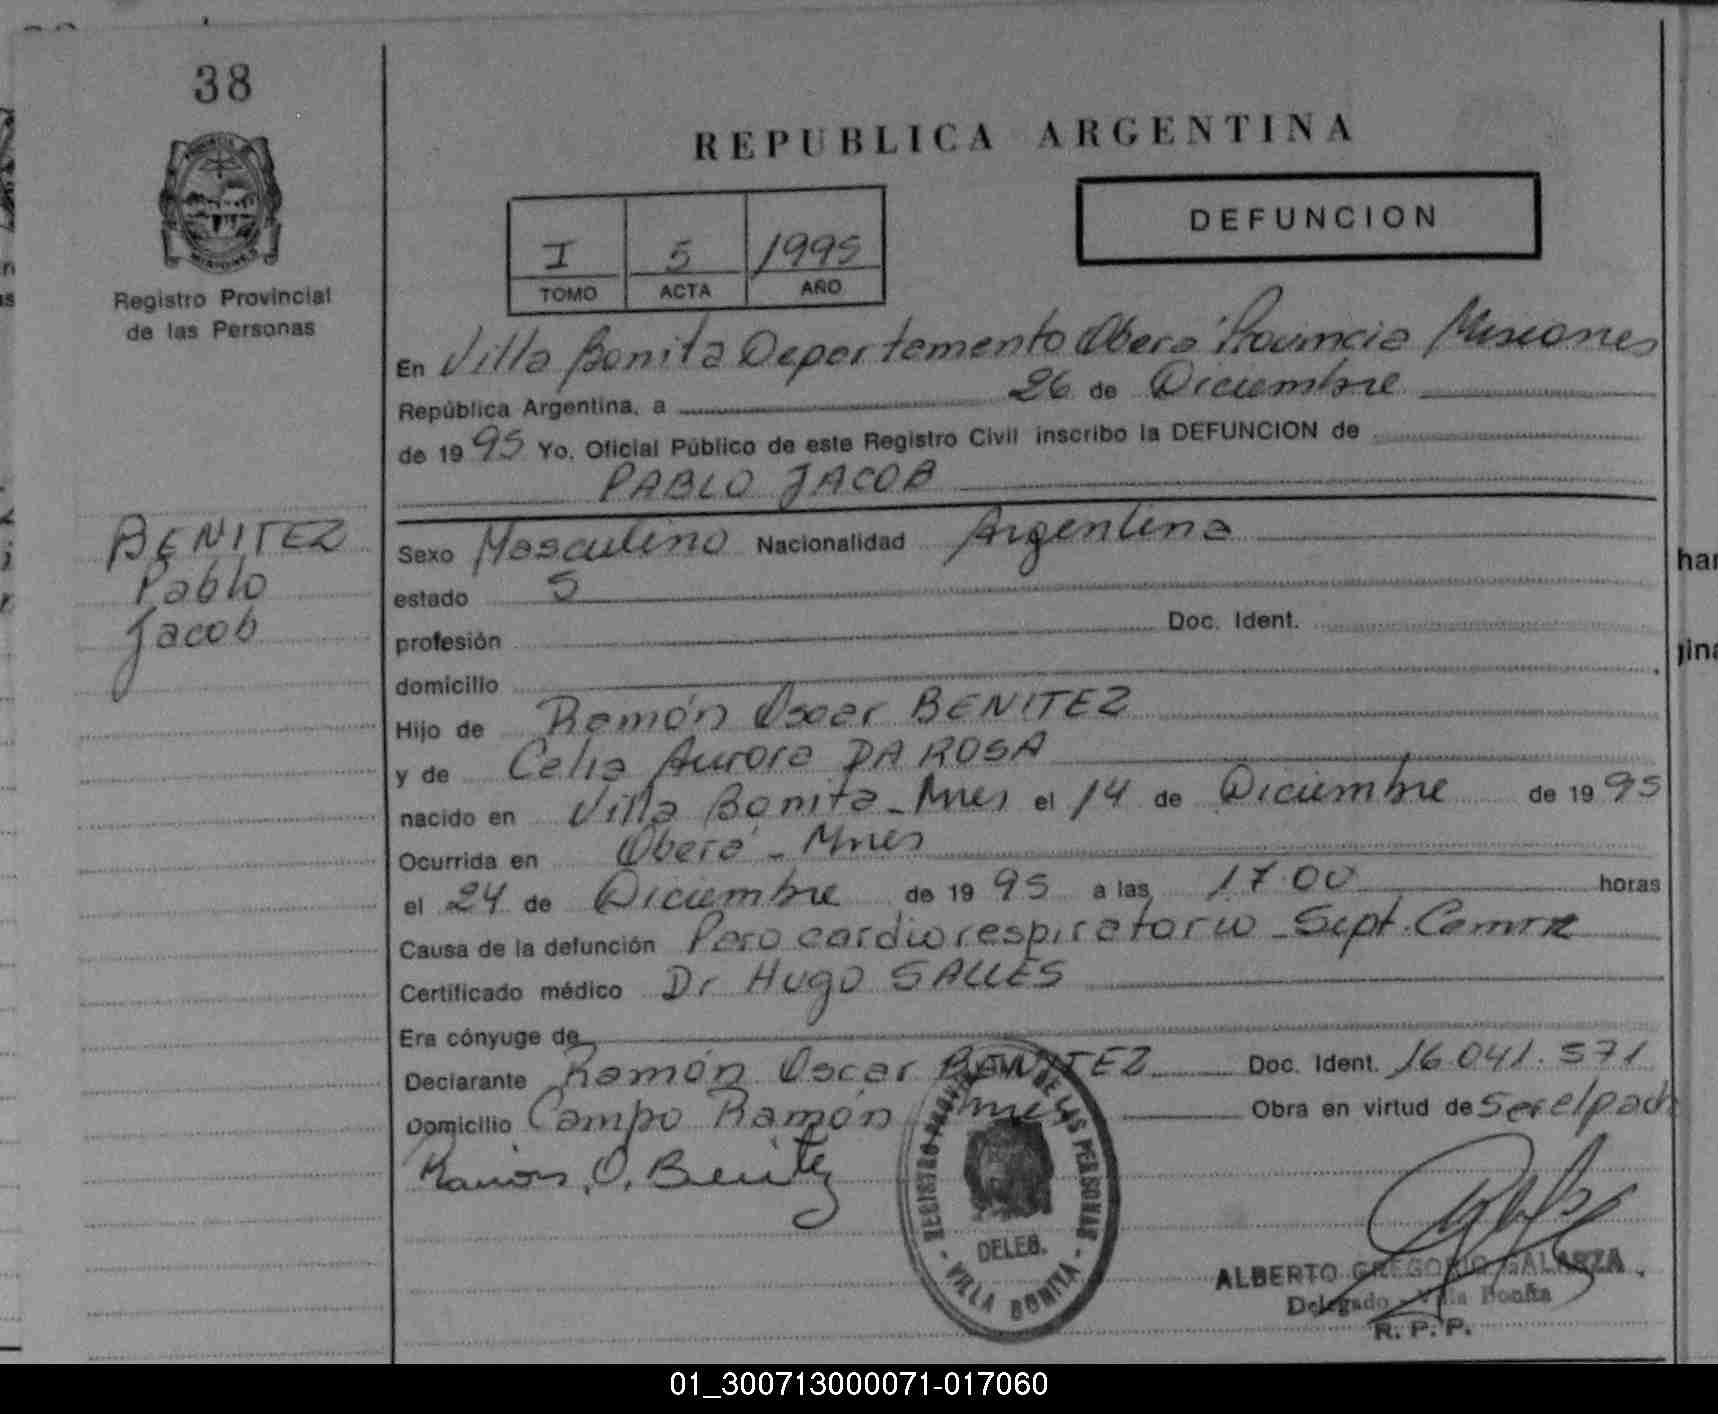 38
REPUBLICA ARGENTINA
DEFUNCION
I 5 1995
TOMO ACTA AÑO
Registro Provincial
de las Personas
En Villa Bonita Departamento Oberá Provincia Misiones
República Argentina, a 26 de Diciembre
de 1995 Yo, Oficial Público de este Registro Civil inscribo la DEFUNCION de
PABLO JACOB
BENITEZ
Pablo
Jacob
Sexo Masculino Nacionalidad Argentina
estado S
profesión Doc. Ident.
domicilio
Hijo de Ramón Oscar BENITEZ
y de Celia Aurora DA ROSA
nacido en Villa Bonita - Mnes el 14 de Diciembre de 1995
Ocurrida en Oberá - Mnes
el 24 de Diciembre de 1995 a las 17.00 horas
Causa de la defunción Paro cardiorespiratorio - Sept.
Certificado médico Dr Hugo SALLES
Era cónyuge de
Declarante Ramón Oscar BENITEZ Doc. Ident. 16.041.571
Domicilio Campo Ramón Mnes Obra en virtud de
Ramón O. Benitez
REGISTRO DE LAS PERSONAS
DELEG.
- VILLA BONITA -
ALBERTO GREGORIO GALARZA
Delegado - Villa Bonita
R. P. P.
01_300713000071-017060